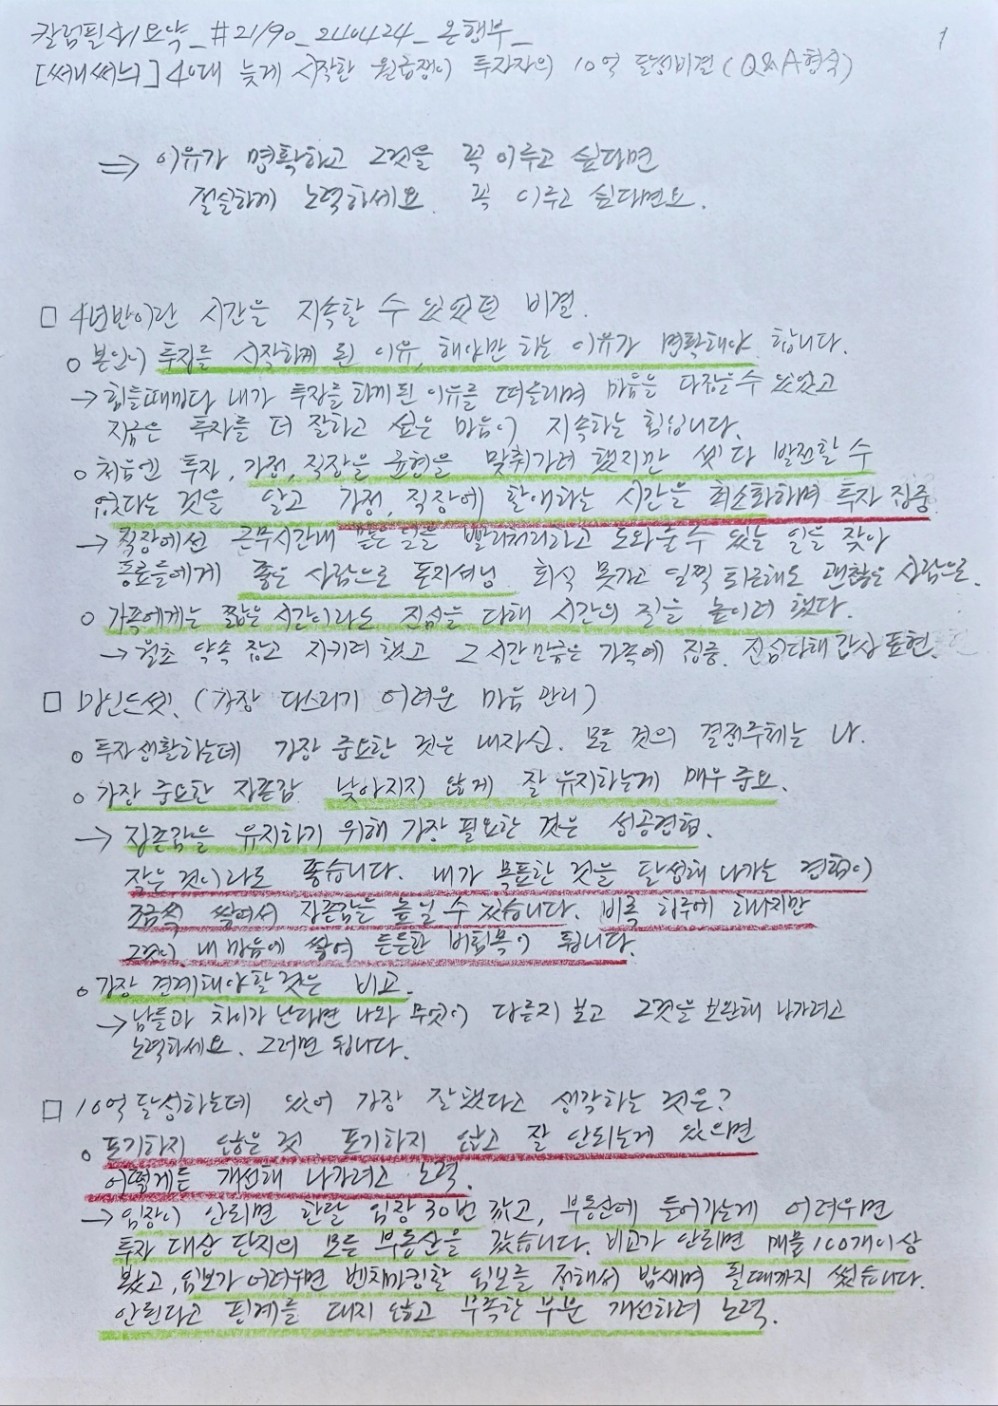 칼럼필사/요약_#21/90_240424_온행부_
1
[써니써늬] 40대 늦게 시작한 월급쟁이 투자자의 10억 달성비결 (Q&A형식)
⇒ 이유가 명확하고 그것을 꼭 이루고 싶다면
절실하게 노력하세요. 꼭 이루고 싶다면요.
□ 4년반이란 시간을 지속할 수 있었던 비결.
o 본인이 투자를 시작하게 된 이유, 해야만 하는 이유가 명확해야 합니다.
→ 힘들때마다 내가 투자를 하게된 이유를 떠올리며 마음을 다잡을수 있었고
지금은 투자를 더 잘하고 싶은 마음이 지속하는 힘입니다.
o 처음엔 투자, 가정, 직장은 균형을 맞춰가려 했지만 셋 다 발전할 수
없다는 것을 알고 가정, 직장에 할애하는 시간을 최소화하며 투자 집중
→ 직장에선 근무시간내 모든 일을 빨리처리하고 도와줄수 있는 일을 찾아
동료들에게 좋은 사람으로 포지셔닝. 회식 못가고 일찍 퇴근해도 괜찮은 사람으로.
o 가족에게는 짧은 시간이라도 진심을 다해 시간의 질을 높이려 했다.
→ 월초 약속 잡고 지키려 했고 그 시간만큼은 가족에 집중. 진심다해 감사 표현.
□ 마인드셋. (가장 다스리기 어려운 마음 관리)
o 투자생활하는데 가장 중요한 것은 내자신. 모든 것의 결정주체는 나.
o 가장 중요한 자존감 낮아지지 않게 잘 유지하는게 매우 중요.
→ 자존감을 유지하기 위해 가장 필요한 것은 성공경험.
작은 것이라도 좋습니다. 내가 목표한 것을 달성해 나가는 경험이
조금씩 쌓여서 자존감을 높일 수 있습니다. 비록 하루에 하나지만
그것이 내 마음에 쌓여 든든한 버팀목이 됩니다.
o 가장 경계해야할 것은 비교.
→ 남들과 차이가 난다면 나와 무엇이 다른지 보고 그것을 보완해 나가려고
노력하세요. 그러면 됩니다.
□ 10억 달성하는데 있어 가장 잘했다고 생각하는 것은?
o 포기하지 않은 것. 포기하지 않고 잘 안되는게 있으면
어떻게든 개선해 나가려고 노력.
→ 임장이 안되면 한달 임장 30번 갔고, 부동산에 들어가는게 어려우면
투자 대상 단지의 모든 부동산을 갔습니다. 비교가 안되면 매물 100개이상
봤고, 임보가 어려우면 벤치마킹할 임보를 정해서 밤새며 될때까지 썼습니다.
안된다고 핑계를 대지 않고 부족한 부분 개선하려 노력.